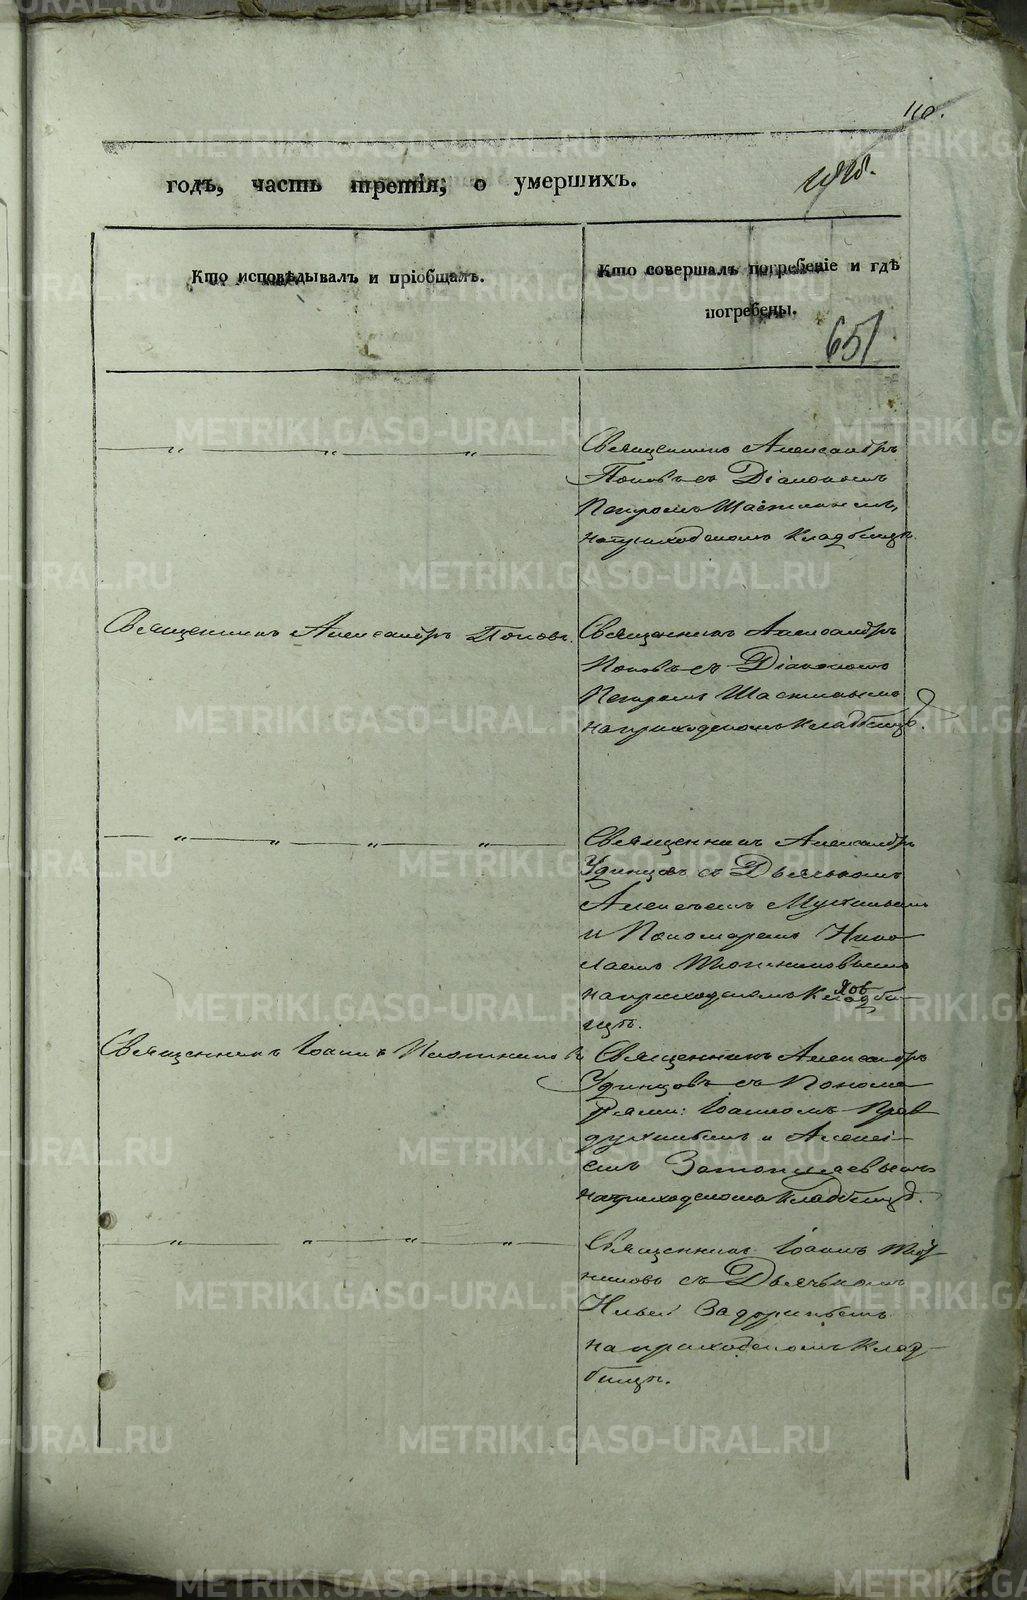 110.
годъ, часть третія, о умершихъ.
Кто исповѣдывалъ и пріобщалъ.
Кто совершалъ погребеніе и гдѣ
погребены.
651
Священникъ Александръ
Поповъ съ Діакономъ
Петромъ
на приходскомъ кладбищѣ.
Священникъ Александръ Поповъ.
Священникъ Александръ
Поповъ съ Діакономъ
Петромъ
на приходскомъ кладбищѣ.
Священникъ Александръ
Удинцовъ съ Дьячькомъ
Алексѣемъ
и Пономаремъ Нико
лаемъ
на приходскомъ кладби-
щѣ.
Священникъ Іоаннъ
Священникъ Александръ
Удинцовъ съ Понома
рями: Іоанномъ
и Алексѣ-
емъ
на приходскомъ кладбищѣ.
Священникъ Іоаннъ
съ Дьячькомъ
Ильей
на приходскомъ клад-
бищѣ.
METRIKI.GASO-URAL.RU